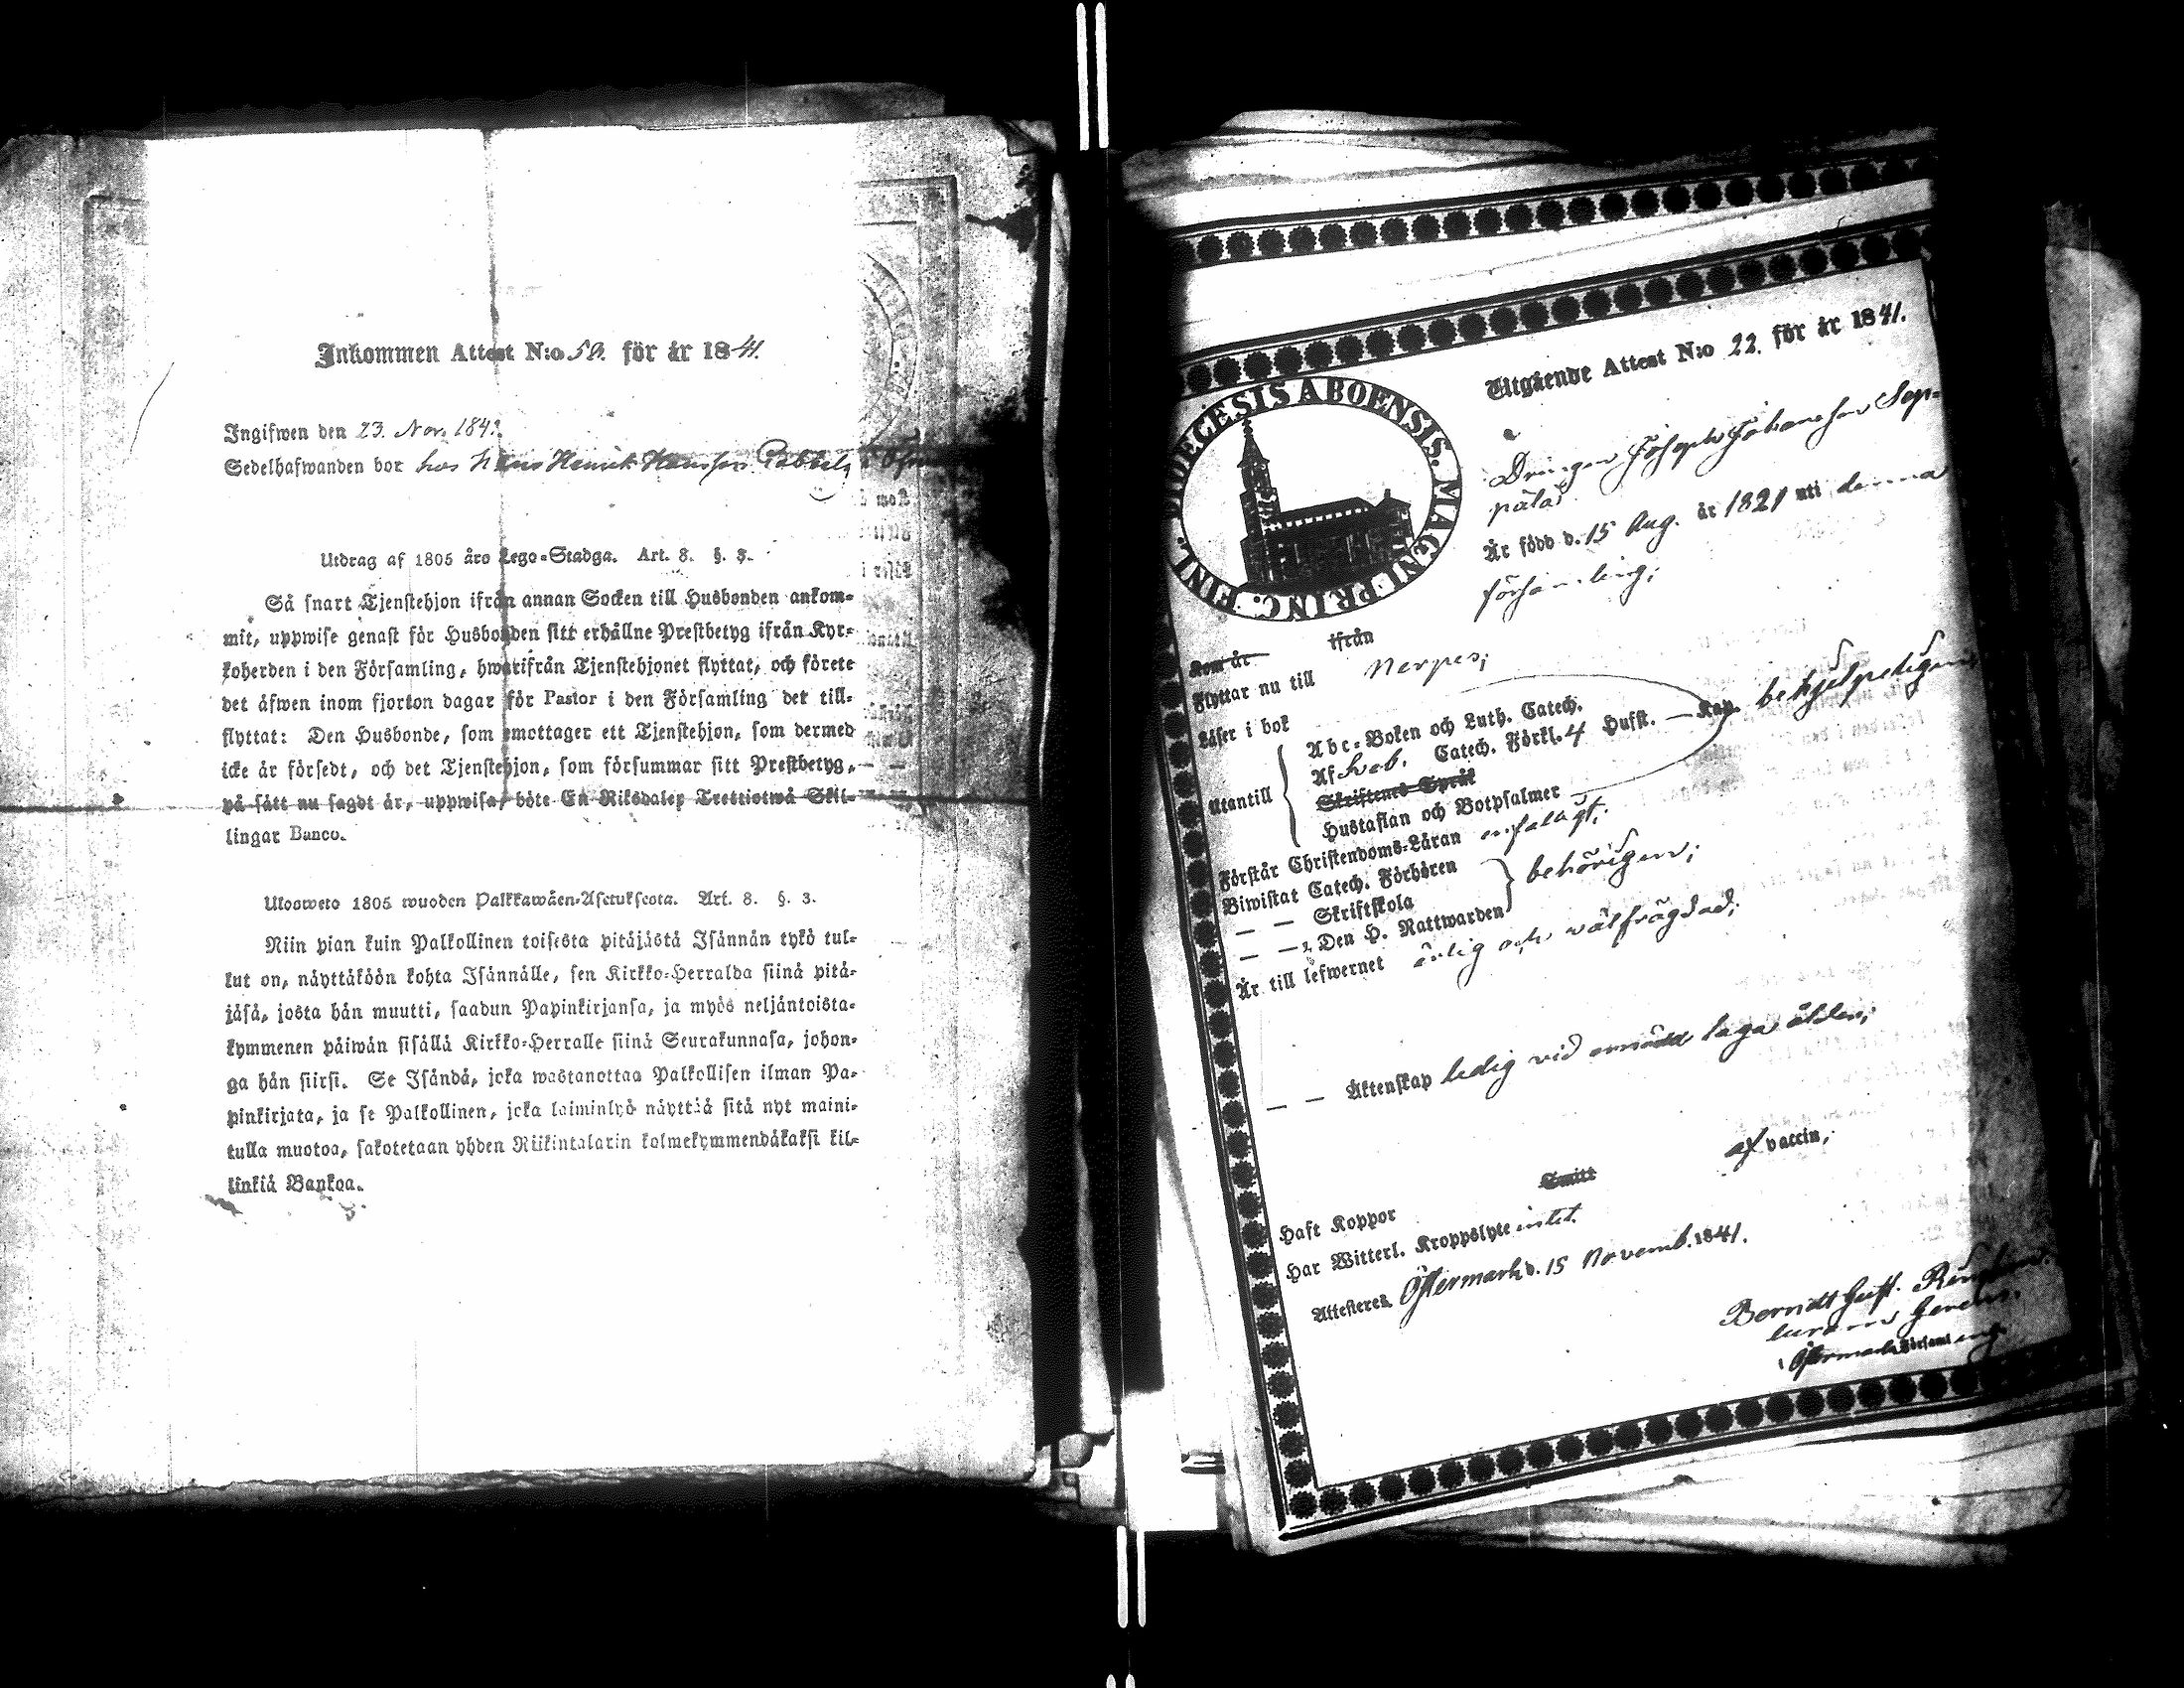 Inkommen Attest N:o 50. för år 1841.
Ingifwen den 23. Nov. 1841.
Sedelhafwanden bor hos Hans Henrik Hansson
Utdrag af 1805 års Lego-Stadga. Art. 8. §. 3.
Så snart Tjenstehjon ifrån annan Socken till Husbonden ankom-
mit, uppwise genast för Husbonden sitt erhållne Prestbetyg ifrån Kyr-
koherden i den Församling, hwarifrån Tjenstehjonet flyttat, och förete
det äfwen inom fjorton dagar för Pastor i den Församling det till-
flyttat: Den Husbonde, som emottager ett Tjenstehjon, som dermed
icke är försedt, och det Tjenstehjon, som försummar sitt Prestbetyg,
på sätt nu sagdt är, uppwisa, böte En Riksdaler Trettiotwå Skil-
lingar Banco.
Uloswete 1805 wuoden Palkkawäen-Asetuksesta. Art. 8. §. 3.
Niin pian kuin Palkollinen toisesta pitäjästä Isännän tykö tul-
lut on, näyttäköön kohta Isännälle, sen Kirkko-Herralda siinä pitä-
jäsä, josta hän muutti, saadun Papinkirjansa, ja myös neljäntoista-
kymmenen päiwän sisällä Kirkko-Herralle siinä Seurakunnasa, johon-
ga hän siirsi. Se Isändä, joka wastanottaa Palkollisen ilman Pa-
pinkirjata, ja se Palkollinen, joka laiminlyö näyttää sitä nyt maini-
tulla muotoa, sakotetaan yhden Riikintalarin kolmekymmendäkaksi kil-
linkiä Bankoa.
Utgående Attest N:o 22. för år 1841.
DIOECESIS ABOENSIS. MAGNI PRINC. FINL.
Drengen Joseph Johansson Sep-
pälä
Är född d. 15 Aug. år 1821 uti denna
församling;
Kom år ifrån
Flyttar nu till Nerpes;
Läser i bok
Abc-Boken och Luth. Catech.
Utantill Af Sveb. Catech. Förkl. 4 Hufst. — Kap. behjelpeligen;
Skriftenes Språk
Hustaflan och Botpsalmer
Förstår Christendoms-Läran enfaldigt;
Biwistat Catech. Förhören
— — Skriftskola behörigen;
— — Den H. Nattwarden
Är till lefwernet ärlig och välfrägdad;
— — Äktenskap ledig vid laga ålder;
Haft Koppor Smitt af vaccin;
Har Witterl. Kroppslyte intet.
Attesteras Östermark d. 15 Novemb. 1841.
Berndt Gust.
i Östermark Församling